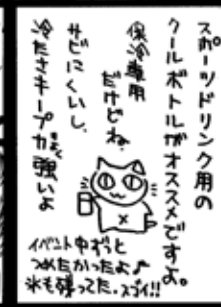 スポーツドリンク用の
クールボトルがオススメですよ。
保冷専用
だけどね
サビにくいし、
冷たさキープ力強いよ
イベント中ずっと
つめたかったよ♪
氷も残ってた。スゴイ!!